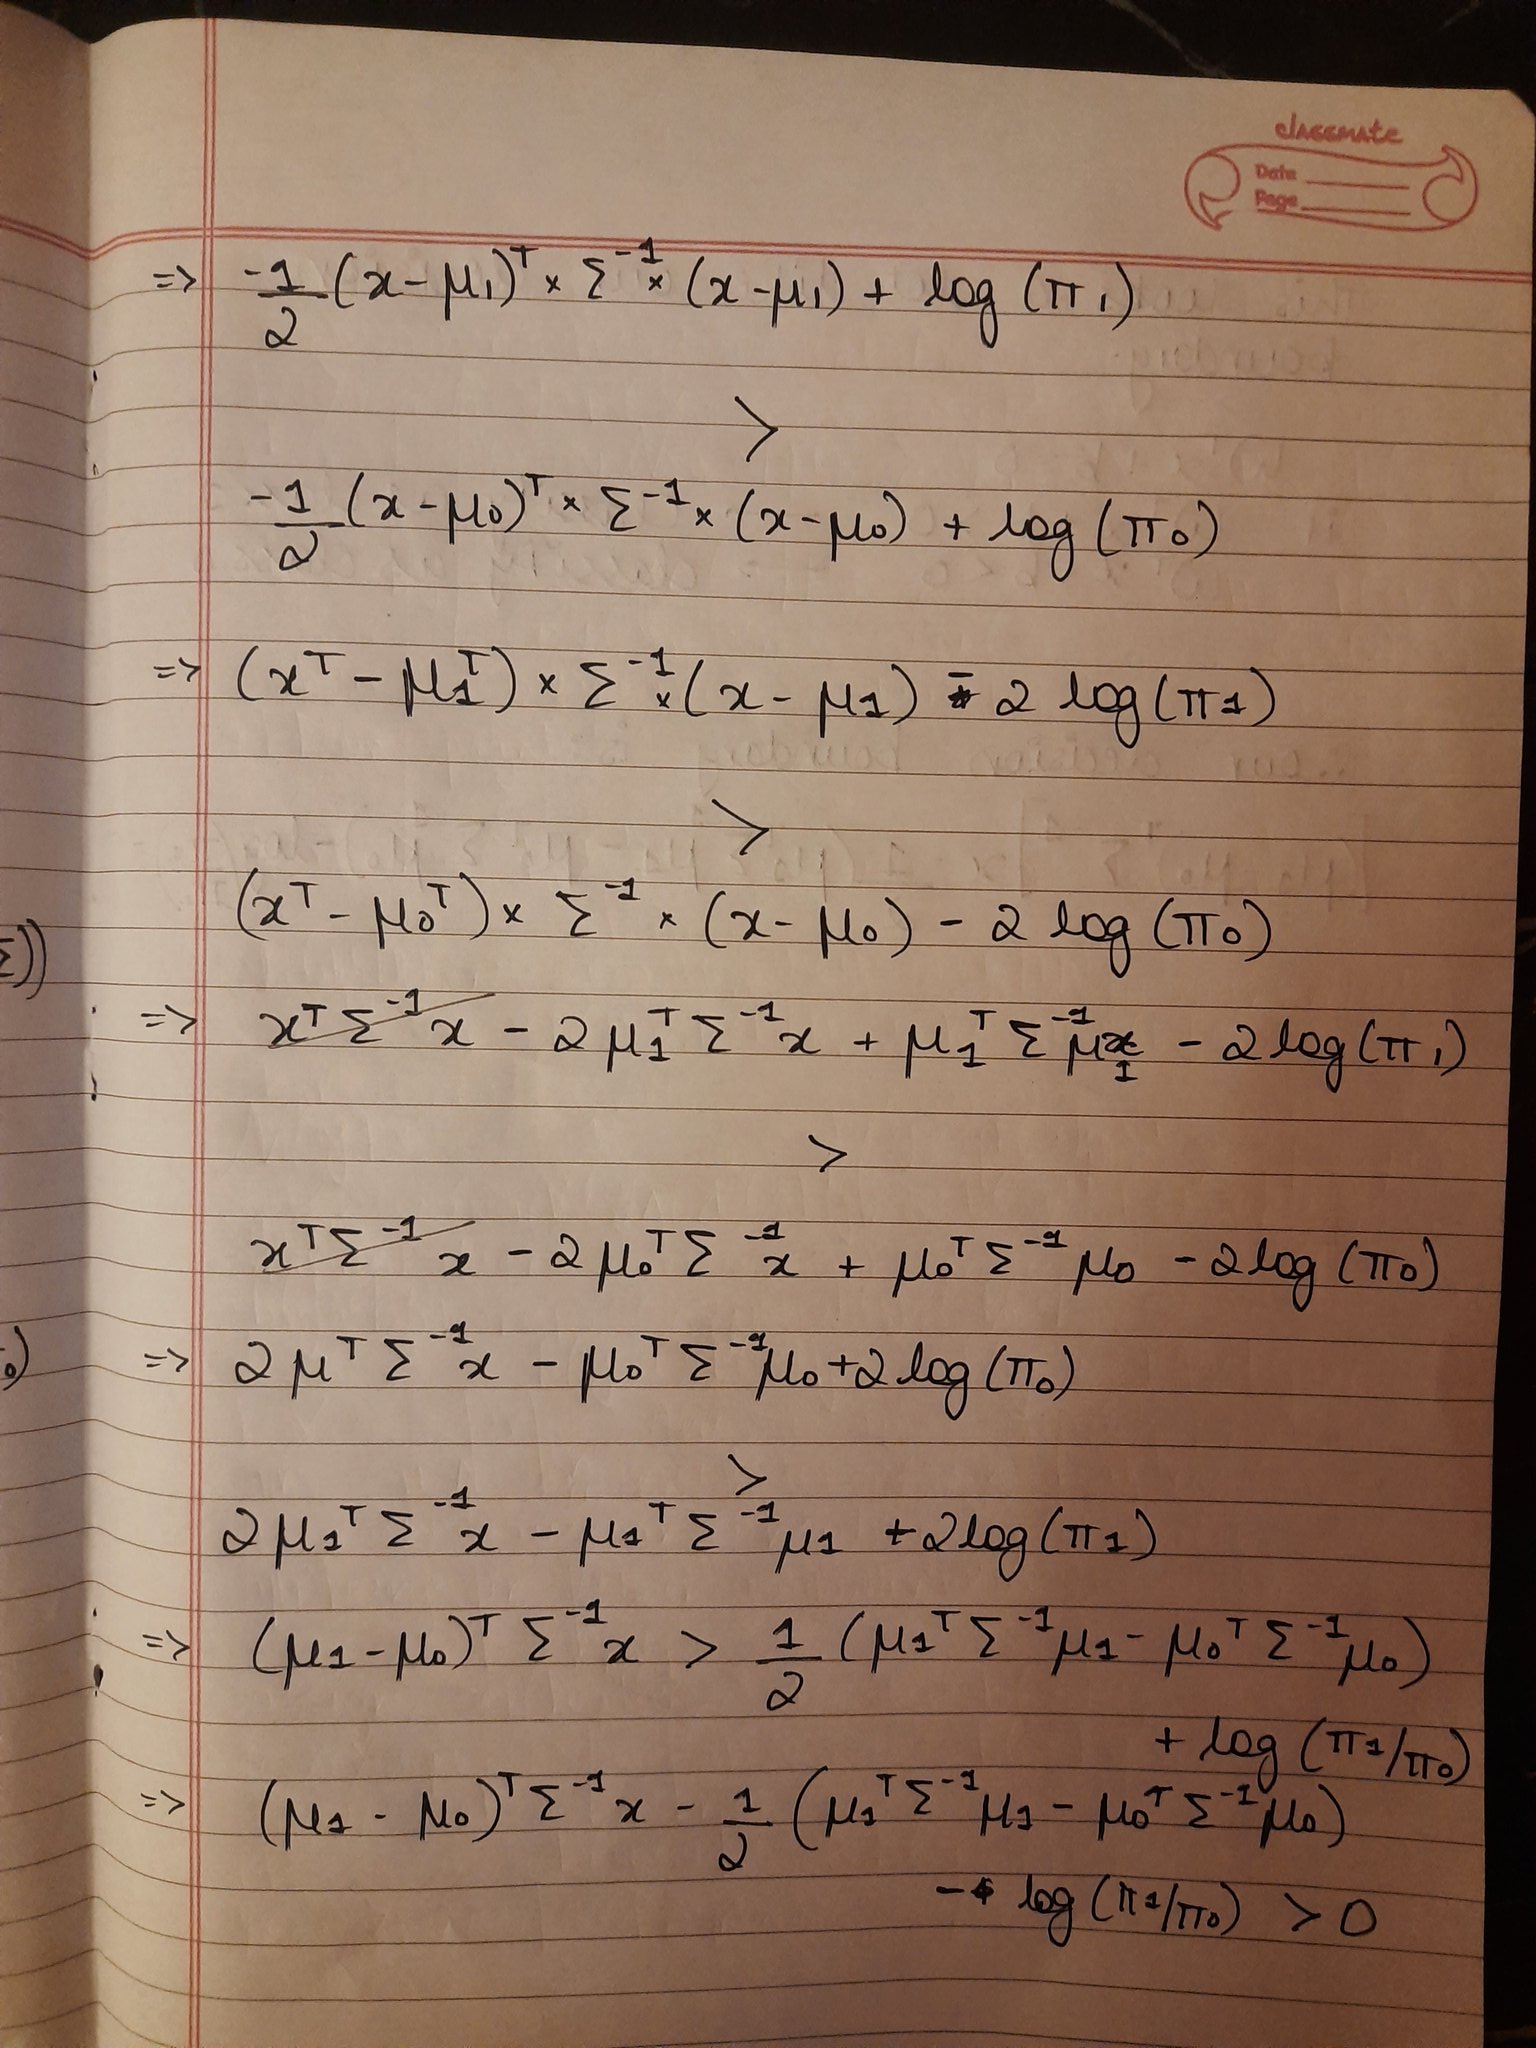 classmate
Date
Page
=> -1/2 (x-μ₁)ᵀ × Σ⁻¹ × (x-μ₁) + log (π₁)
>
-1/2 (x-μ₀)ᵀ × Σ⁻¹ × (x-μ₀) + log (π₀)
=> (xᵀ - μ₁ᵀ) × Σ⁻¹ × (x - μ₁) - 2 log(π₁)
>
(xᵀ - μ₀ᵀ) × Σ⁻¹ × (x - μ₀) - 2 log (π₀)
Σ))
=> xᵀ Σ⁻¹ x - 2 μ₁ᵀ Σ⁻¹ x + μ₁ᵀ Σ⁻¹ μ₁ - 2 log (π₁)
>
xᵀ Σ⁻¹ x - 2 μ₀ᵀ Σ⁻¹ x + μ₀ᵀ Σ⁻¹ μ₀ - 2 log (π₀)
=> 2 μᵀ Σ⁻¹ x - μ₀ᵀ Σ⁻¹ μ₀ + 2 log (π₀)
>
2 μ₁ᵀ Σ⁻¹ x - μ₁ᵀ Σ⁻¹ μ₁ + 2 log (π₁)
=> (μ₁ - μ₀)ᵀ Σ⁻¹ x > 1/2 (μ₁ᵀ Σ⁻¹ μ₁ - μ₀ᵀ Σ⁻¹ μ₀)
+ log (π₁/π₀)
=> (μ₁ - μ₀)ᵀ Σ⁻¹ x - 1/2 (μ₁ᵀ Σ⁻¹ μ₁ - μ₀ᵀ Σ⁻¹ μ₀)
- log (π₁/π₀) > 0